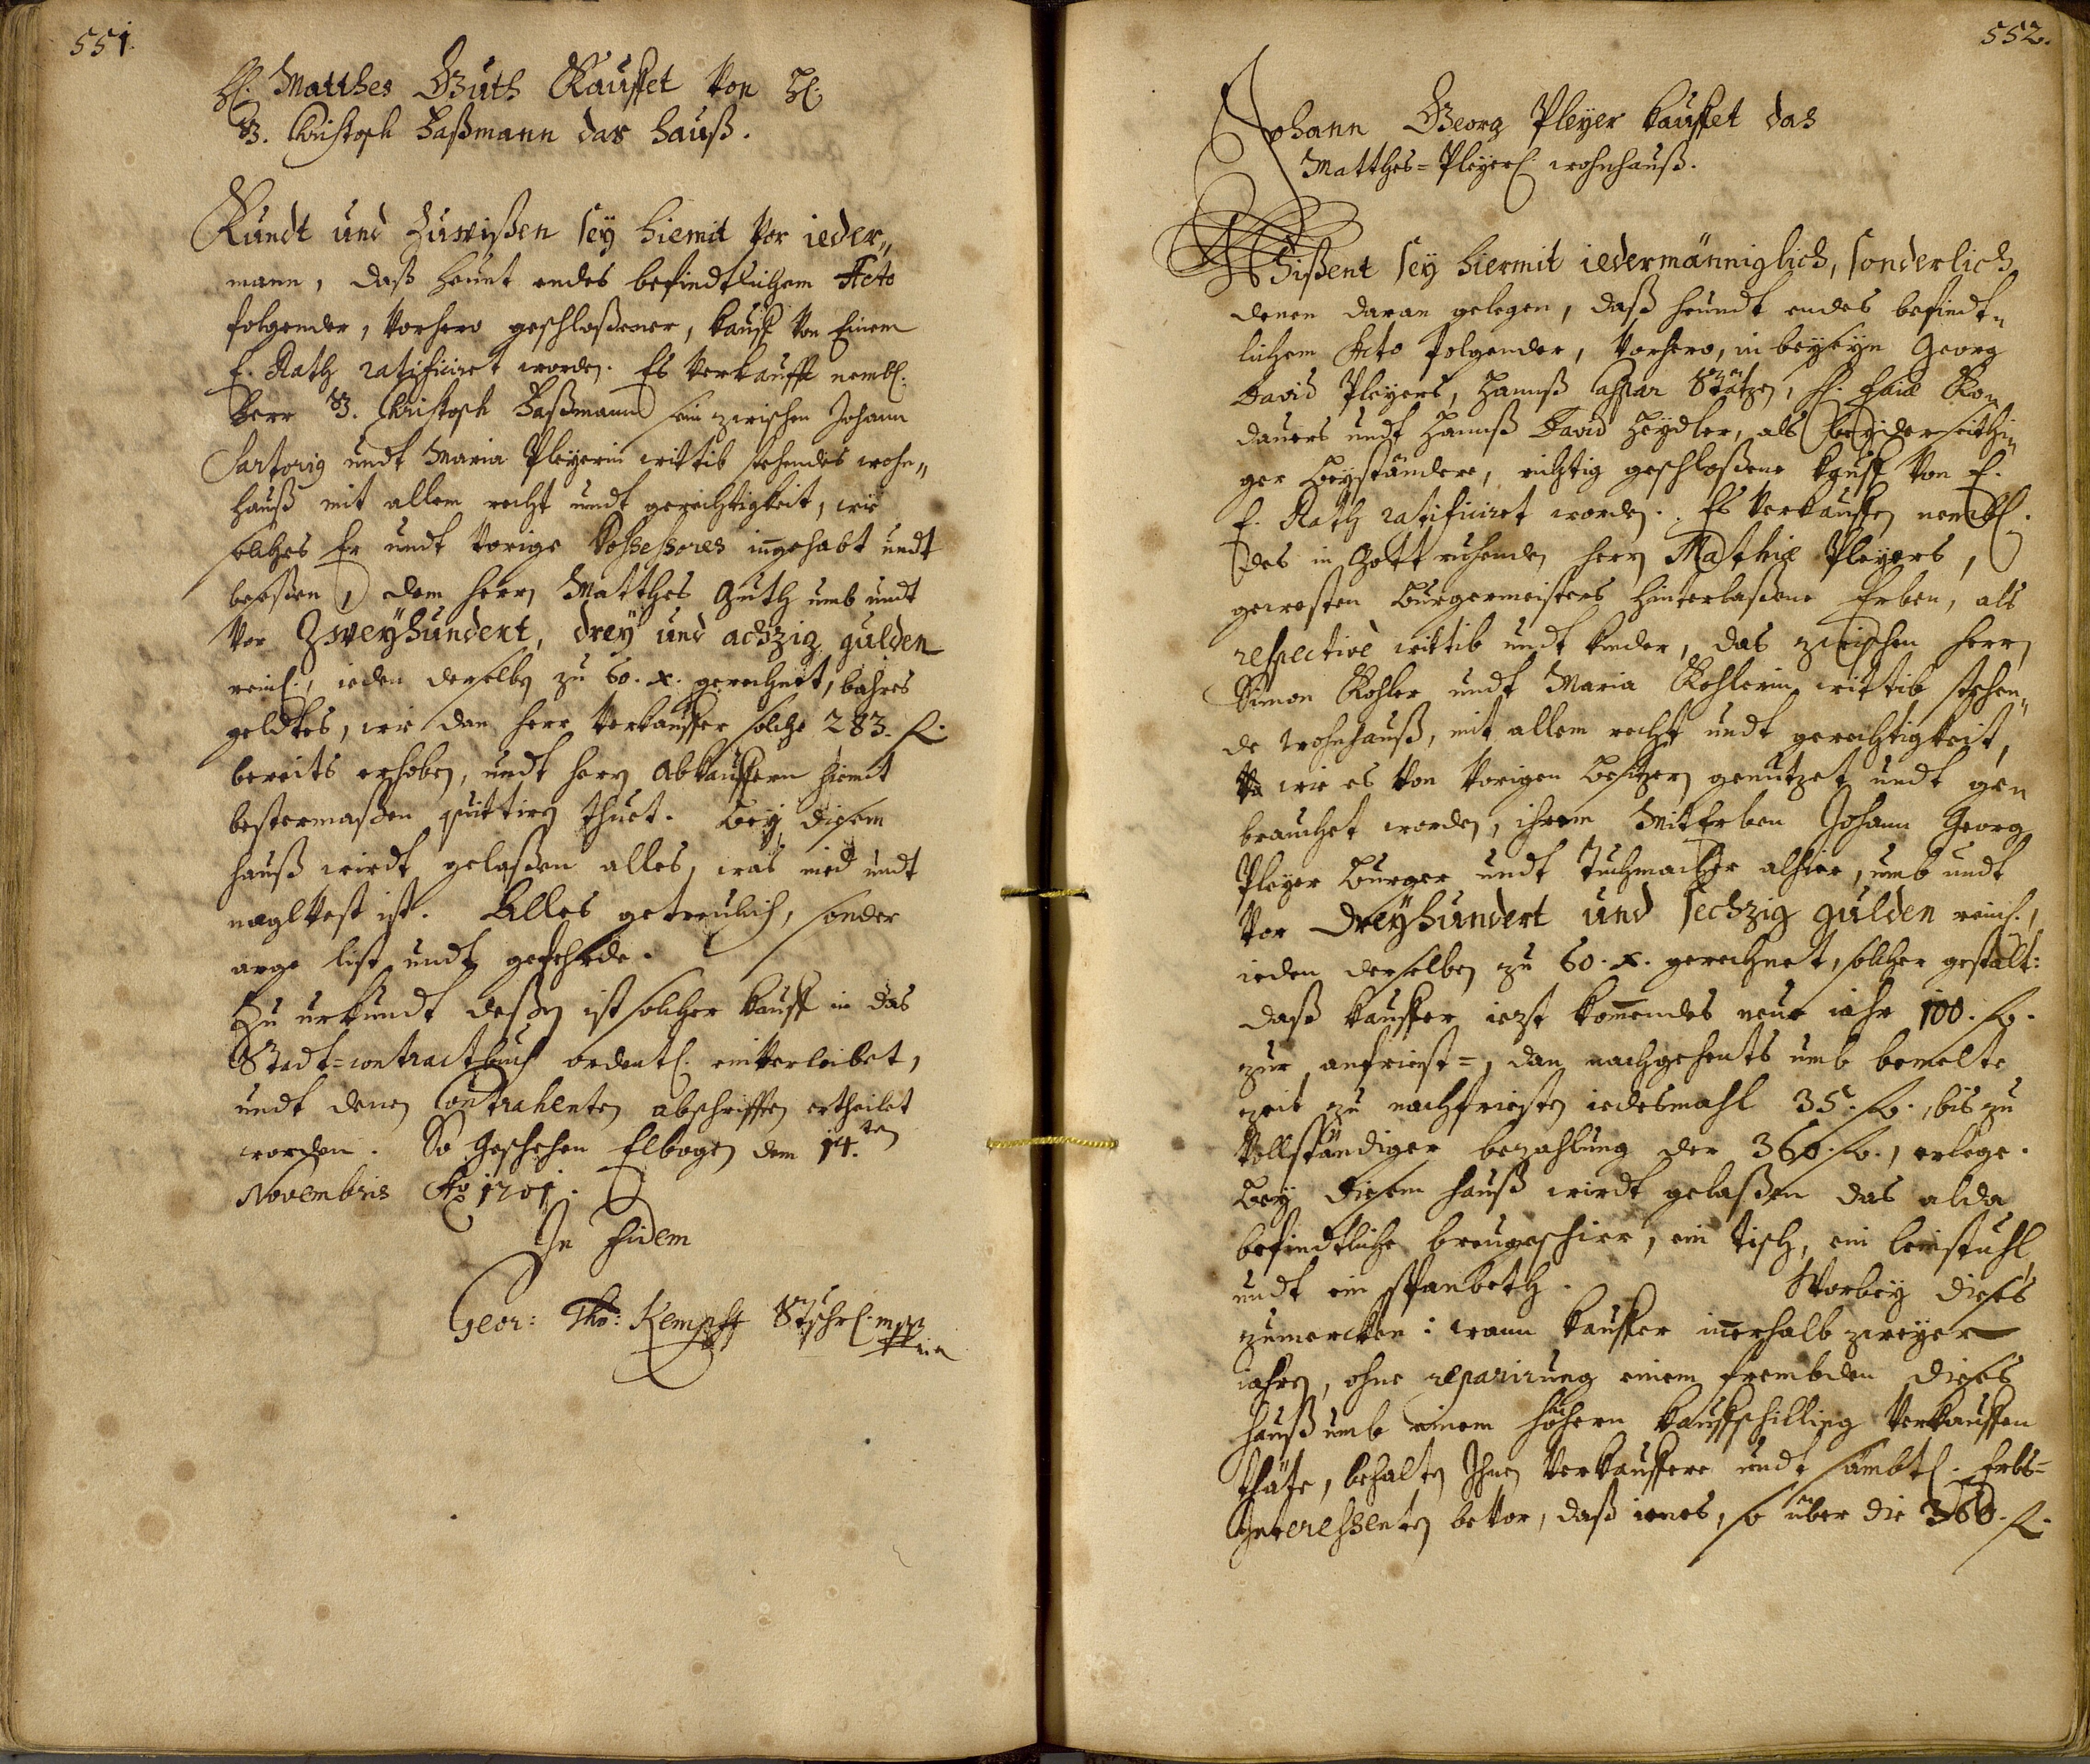 551.
H. Matthes Guth Kauffet von H.
B. Christoph Haßmann das hauß.
Kundt und Zuwißen sey hiemit vor ieder„
mann, daß heunt endes befindtlichem Acto
folgender, vorhero geschloßener, kauff von Einem
E. Rath ratificiret worden. Es verkaufft nembl.
Herr B. Christoph Haßmann sein zwischen Johann
Sartorig undt Maria Pleyerin wittib stehendes wohn„
hauß mit allem recht undt gerechtigkeit, wie
solches Er undt vorige Possessores ingehabt undt
beseßen, dem herrn Matthes Guth umb undt
vor Zweyhundert, drey und achzig gulden
reinl., ieden derselben zu 60. x. gerechnet, bahres
geldtes, wie dan herr verkauffer solche 283. fl.
bereits erhoben, undt herrn abkauffern hiemit
bestermaßen quittiren thuet. Bey diesem
hauß wirdt gelaßen alles, was nied undt
naglvest ist. Alles getreulich, sonder
arge list undt gefehrde.
Zu urkundt deßen ist solcher kauff in das
Stadt=contractbuch ordentl. einverleibet,
undt denen Contrahenten abschrifften ertheilet
worden. So geschehen Elbogen dem 14.ten
Novembris Ao 1701.
In Fidem
Geor: Tho: Kempff Stschr. mpp
552.
Johann Georg Pleyer kauffet das
Matthes=Pleyerl. wohnhauß.
Wißent sey hiermit iedermänniglich, sonderlich
denen daran gelegen, daß heundt endes befindt„
lichem Acto folgender, vorhero, in beyseyn Georg
David Pleyers, Hannß Caspar Stätzen,
dauers undt Hannß David Heydler, als beyderseithi„
ger Beyständere, richtig geschloßene kauff von E.
E. Rath ratificiret worden. Es verkauffen nembl.
des in Gott ruhenden herrn Mathiæ Pleyers,
gewesten Burgermeisters hinterlaßene Erben, als
respectivè wittib undt kinder, das zwischen herrn
Simon Kohler undt Maria Kohlerin wittib stehen„
de wohnhauß, mit allem recht undt gerechtigkeit,
wie es von vorigen besitzern genutzet undt ge„
brauchet worden, ihrem MitErben Johann Georg
Pleyer Burger undt Tuchmacher alhier, umb undt
vor Dreyhundert und sechzig gulden reinl.,
ieden derselben zu 60. x. gerechnet, solcher gestalt:
daß kauffer iezt kommendes neue iahr 100. fl.
zur anfriest=, dan nachgehents umb bemelte
zeit zu nachfriesten iedesmahl 35. fl., bis zu
vollständiger bezahlung der 360. fl., erlege.
Bey diesem hauß wirdt gelaßen das alda
befindtliche breugeschirr, ein tisch, ein leinstuhl,
undt ein spanbeth. Worbey dieses
zumercken: wann kauffer innerhalb zweyer
iahren, ohne reparirung einem frembden dieses
hauß umb einem höhern kauffschilling verkauffen
thäte, behalten Ihnen verkauffere undt sämbtl. Erbs=
Interessenten bevor, daß ienes, so über die 360. fl.